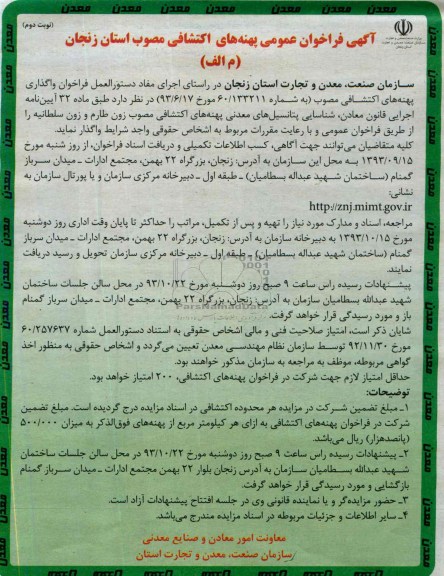 (نوبت دوم)
آگهی فراخوان عمومی پهنه‌های اکتشافی مصوب استان زنجان
(م الف)
سازمان صنعت، معدن و تجارت استان زنجان در راستای اجرای مفاد دستورالعمل فراخوان واگذاری
پهنه‌های اکتشافی مصوب (به شماره ۶۰/۱۳۳۲۱۱ مورخ ۹۳/۶/۱۷) در نظر دارد طبق ماده ۳۲ آیین‌نامه
اجرایی قانون معادن، شناسایی پتانسیل‌های معدنی پهنه‌های اکتشافی مصوب زون طارم و زون سلطانیه را
از طریق فراخوان عمومی و با رعایت مقررات مربوط به اشخاص حقوقی واجد شرایط واگذار نماید.
کلیه متقاضیان می‌توانند جهت آگاهی، کسب اطلاعات تکمیلی و دریافت اسناد فراخوان، از روز شنبه مورخ
۱۳۹۳/۰۹/۱۵ به محل این سازمان به آدرس: زنجان، بزرگراه ۲۲ بهمن، مجتمع ادارات - میدان سرباز
گمنام (ساختمان شهید عبداله بسطامیان) - طبقه اول - دبیرخانه مرکزی سازمان و یا پورتال سازمان به
نشانی:
http://znj.mimt.gov.ir
مراجعه، اسناد و مدارک مورد نیاز را تهیه و پس از تکمیل، مراتب را حداکثر تا پایان وقت اداری روز دوشنبه
مورخ ۱۳۹۳/۱۰/۱۵ به دبیرخانه سازمان به آدرس: زنجان، بزرگراه ۲۲ بهمن، مجتمع ادارات - میدان سرباز
گمنام (ساختمان شهید عبداله بسطامیان) - طبقه اول - دبیرخانه مرکزی سازمان تحویل و رسید دریافت
نمایند.
پیشنهادات رسیده راس ساعت ۹ صبح روز دوشنبه مورخ ۹۳/۱۰/۲۲ در محل سالن جلسات ساختمان
شهید عبدالله بسطامیان سازمان به آدرس: زنجان، بزرگراه ۲۲ بهمن، مجتمع ادارات - میدان سرباز گمنام
باز و مورد رسیدگی قرار خواهد گرفت.
شایان ذکر است، امتیاز صلاحیت فنی و مالی اشخاص حقوقی به استناد دستورالعمل شماره ۶۰/۲۵۷۶۳۷
مورخ ۹۲/۱۱/۳۰ توسط سازمان نظام مهندسی معدن تعیین می‌گردد و اشخاص حقوقی به منظور اخذ
گواهی مربوطه، موظف به مراجعه به سازمان مذکور خواهند بود.
حداقل امتیاز لازم جهت شرکت در فراخوان پهنه‌های اکتشافی، ۲۰۰ امتیاز خواهد بود.
توضیحات:
۱ـ مبلغ تضمین شرکت در مزایده هر محدوده اکتشافی در اسناد مزایده درج گردیده است. مبلغ تضمین
شرکت در فراخوان پهنه‌های اکتشافی به ازای هر کیلومتر مربع از پهنه‌های فوق‌الذکر به میزان ۵۰۰/۰۰۰
(پانصدهزار) ریال می‌باشد.
۲ـ پیشنهادات رسیده راس ساعت ۹ صبح روز دوشنبه مورخ ۹۳/۱۰/۲۲ در محل سالن جلسات ساختمان
شهید عبداله بسطامیان سازمان به آدرس زنجان بلوار ۲۲ بهمن مجتمع ادارات - میدان سرباز گمنام
بازگشایی و مورد رسیدگی قرار خواهد گرفت.
۳ـ حضور مزایده‌گر و یا نماینده قانونی وی در جلسه افتتاح پیشنهادات آزاد است.
۴ـ سایر اطلاعات و جزئیات مربوطه در اسناد مزایده مندرج می‌باشد.
معاونت امور معادن و صنایع معدنی
سازمان صنعت، معدن و تجارت استان